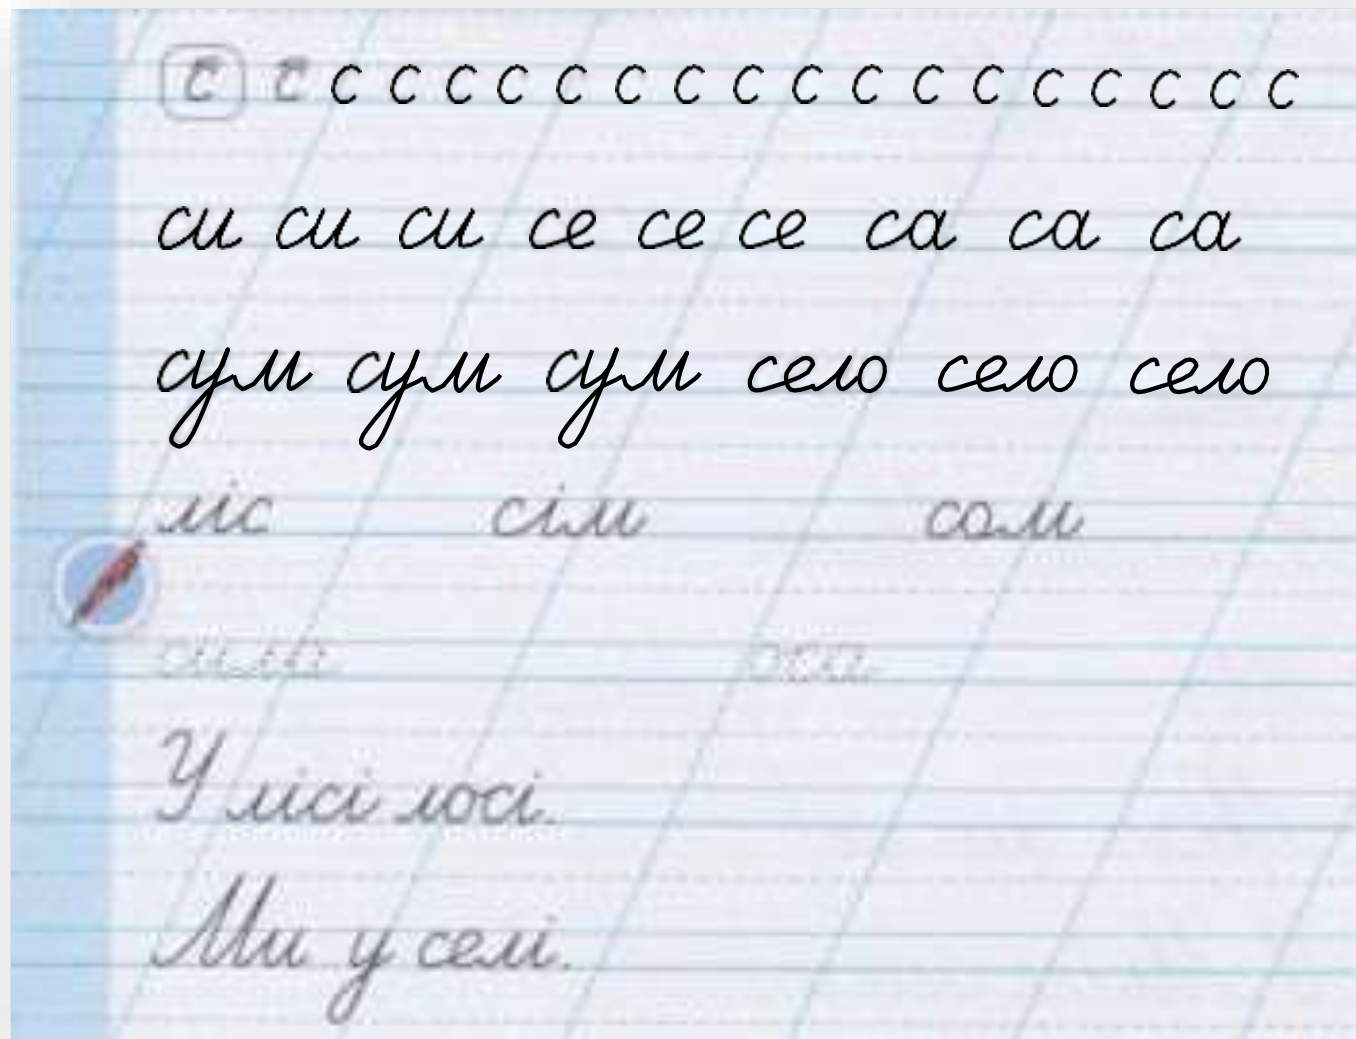 с с с с с с с с с с с с с с с с с с с
си си си се се се са са са
сум сум сум село село село
ліс сім сом
сила оса
У лісі лосі.
Ми у селі.